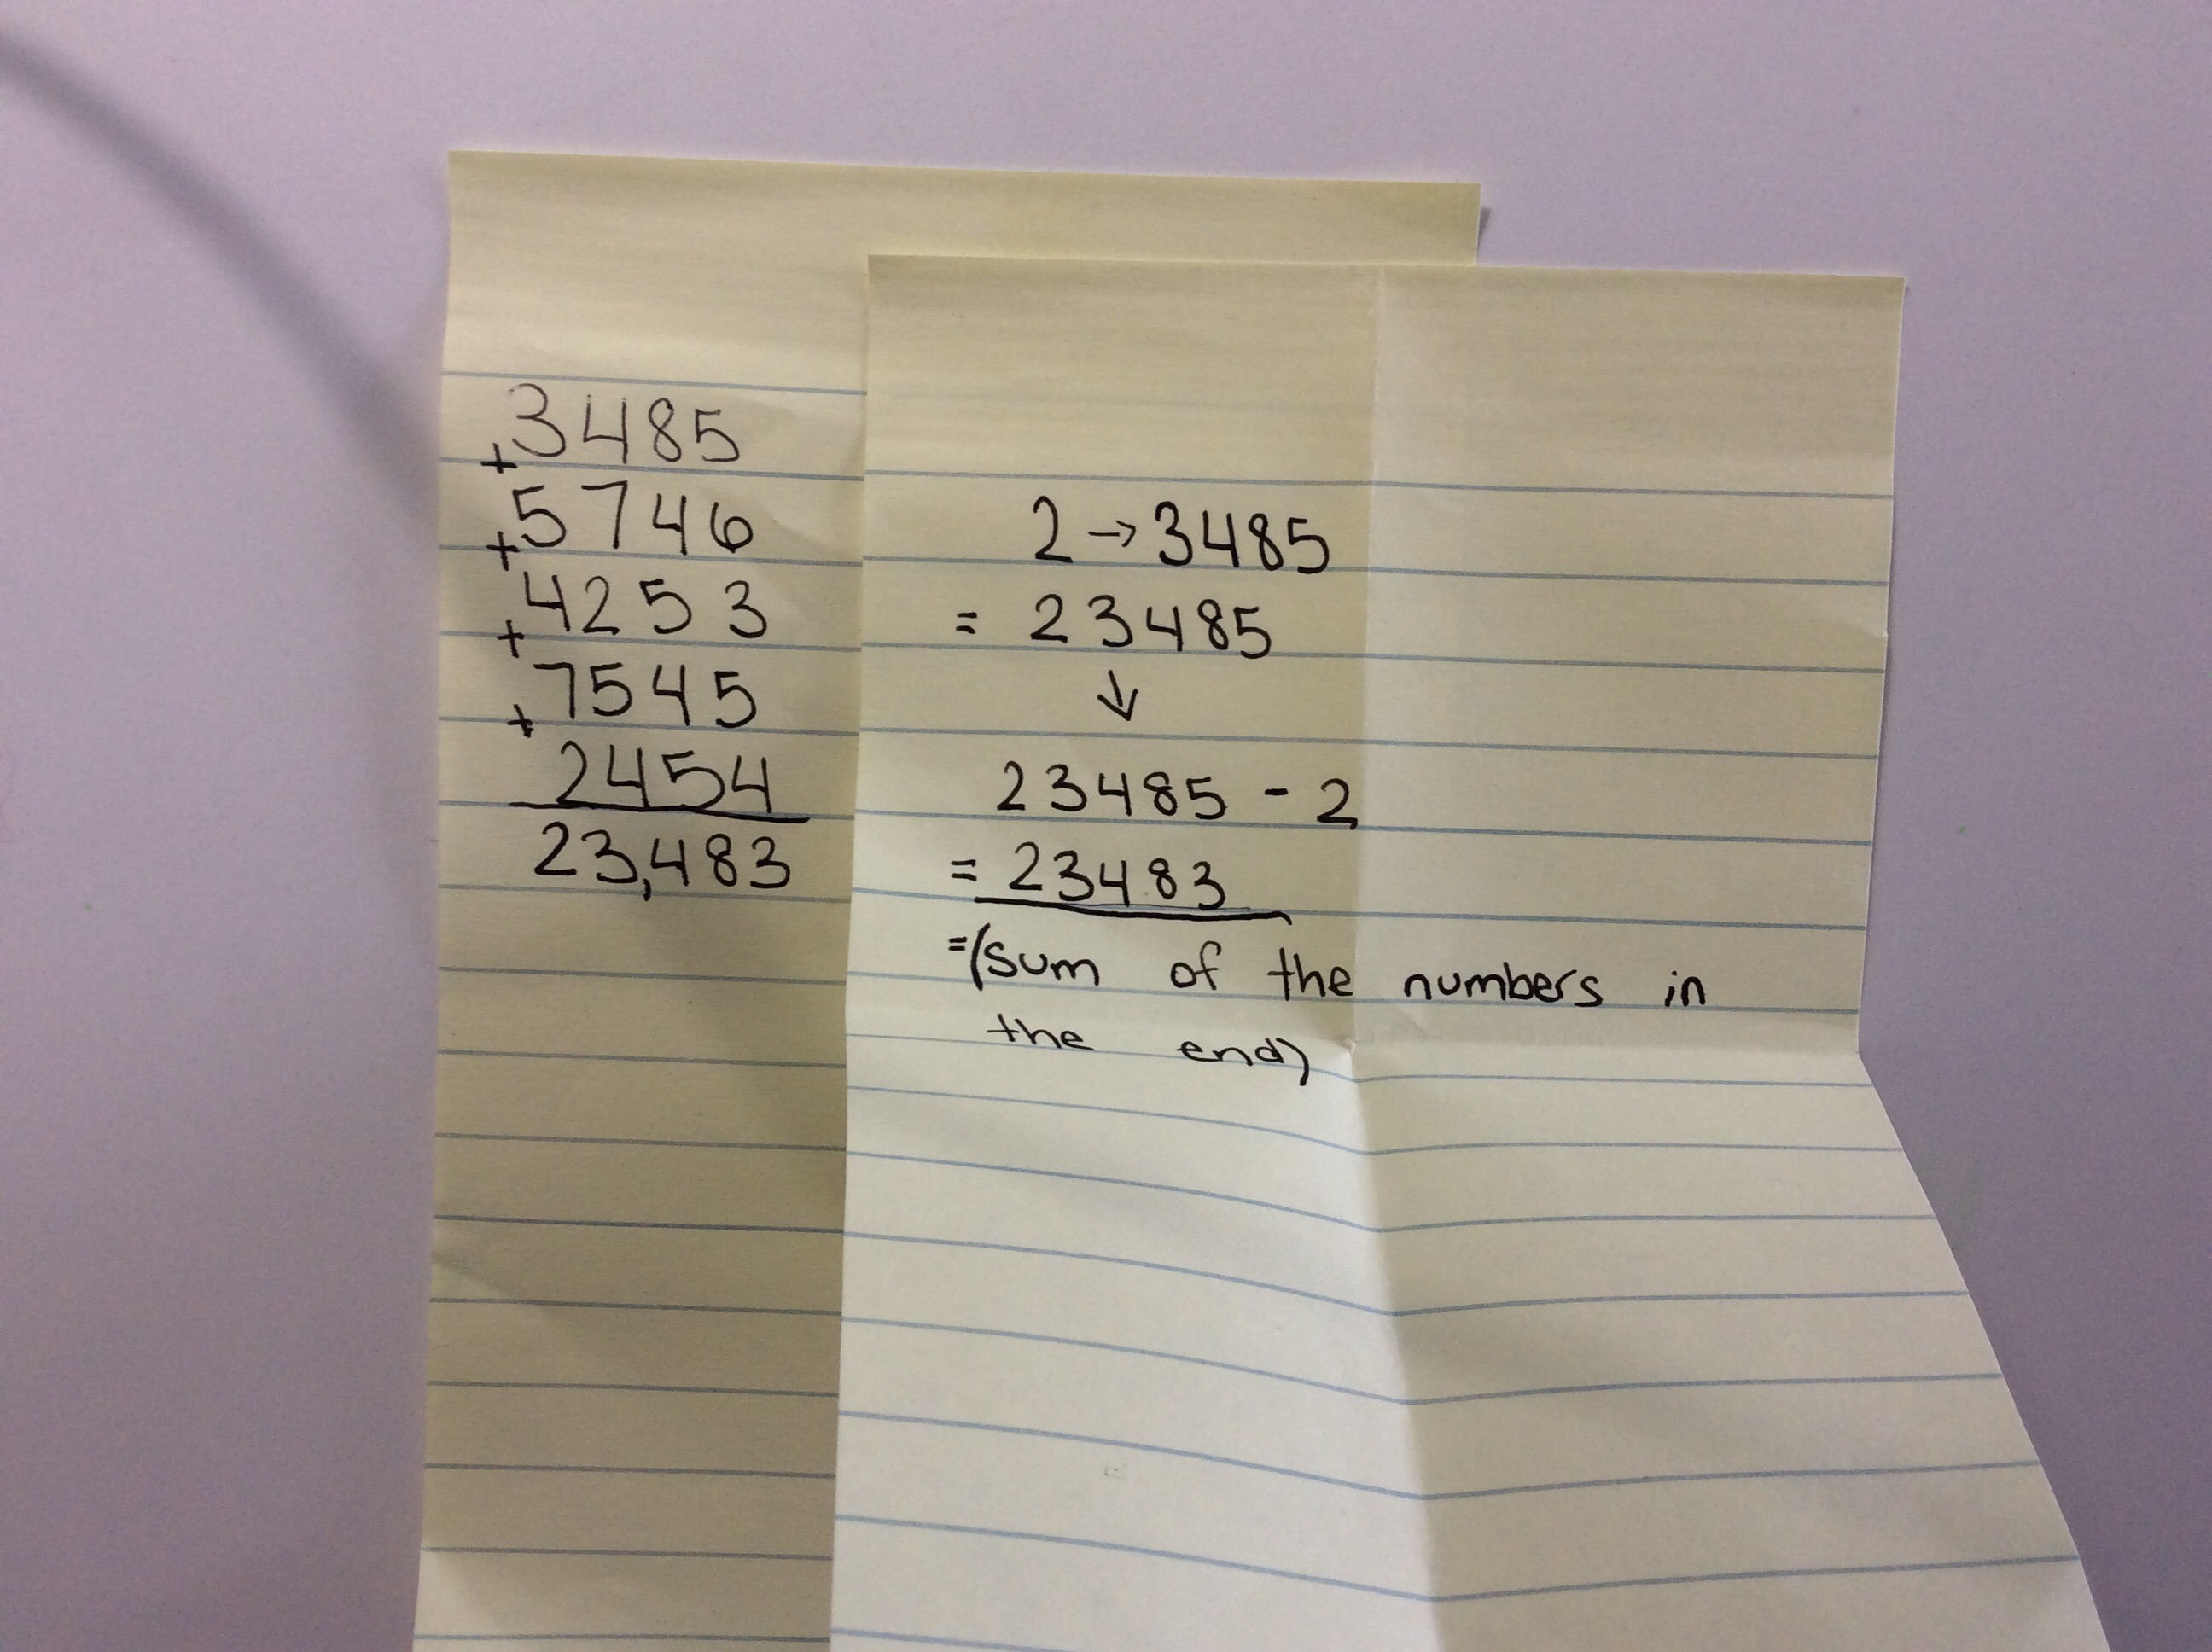 3485
+
5746
+
4253
+
7545
+
2454
23,483
2→3485
= 23485
↓
23485 - 2
= 23483
=(sum of the numbers in
the end)